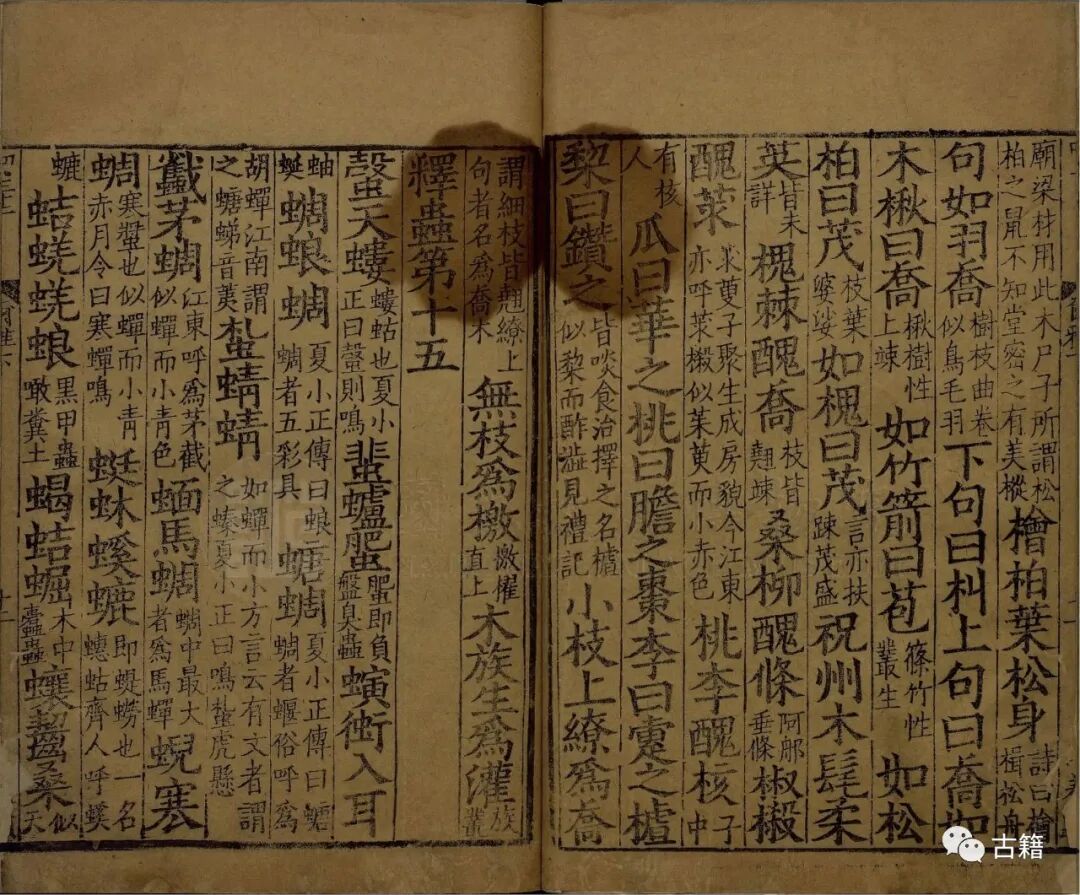 廟梁材用此木尸子所謂松柏之鼠不知堂密之有美樅檜柏葉松身詩曰檜楫松舟
句如羽喬樹枝曲卷似鳥毛羽下句曰朻上句曰喬如
木楸曰喬楸樹性上竦如竹箭曰苞篠竹性叢生如松
柏曰茂枝葉婆娑如槐曰茂言亦扶疎茂盛祝州木髦柔
英皆未詳槐棘醜喬枝皆翹竦桑柳醜條阿那垂條椒樧
醜莍莍萸子聚生成房貌今江東亦呼莍樧似茱萸而小赤色桃李醜核子中
有核人瓜曰華之桃曰膽之棗李曰疐之樝
棃曰鑽之皆啖食治擇之名樝似棃而酢澁見禮記小枝上繚爲喬
謂細枝皆翹繚上句者名爲喬木無枝爲檄檄擢直上木族生爲灌族叢
釋蟲第十五
螜天螻螻蛄也夏小正曰螜則鳴蜚蠦蜰蜰即負盤臭蟲螾衝入耳
蚰蜒蜩蜋蜩夏小正傳曰蜋蜩者五彩具螗蜩夏小正傳曰螗蜩者蝘俗呼爲
胡蟬江南謂之螗蛦音荑蚻蜻蜻如蟬而小方言云有文者謂之螓夏小正曰鳴蚻虎懸
蠽茅蜩江東呼爲茅截似蟬而小青色蝒馬蜩蜩中最大者爲馬蟬蜺寒
蜩寒螿也似蟬而小青赤月令曰寒蟬鳴蜓蚞螇螰即蝭蟧也一名蟪蛄齊人呼螇
螰蛣蜣蜣蜋黑甲蟲噉糞土蝎蛣𧌑木中蠹蟲蠰齧桑似天
古籍